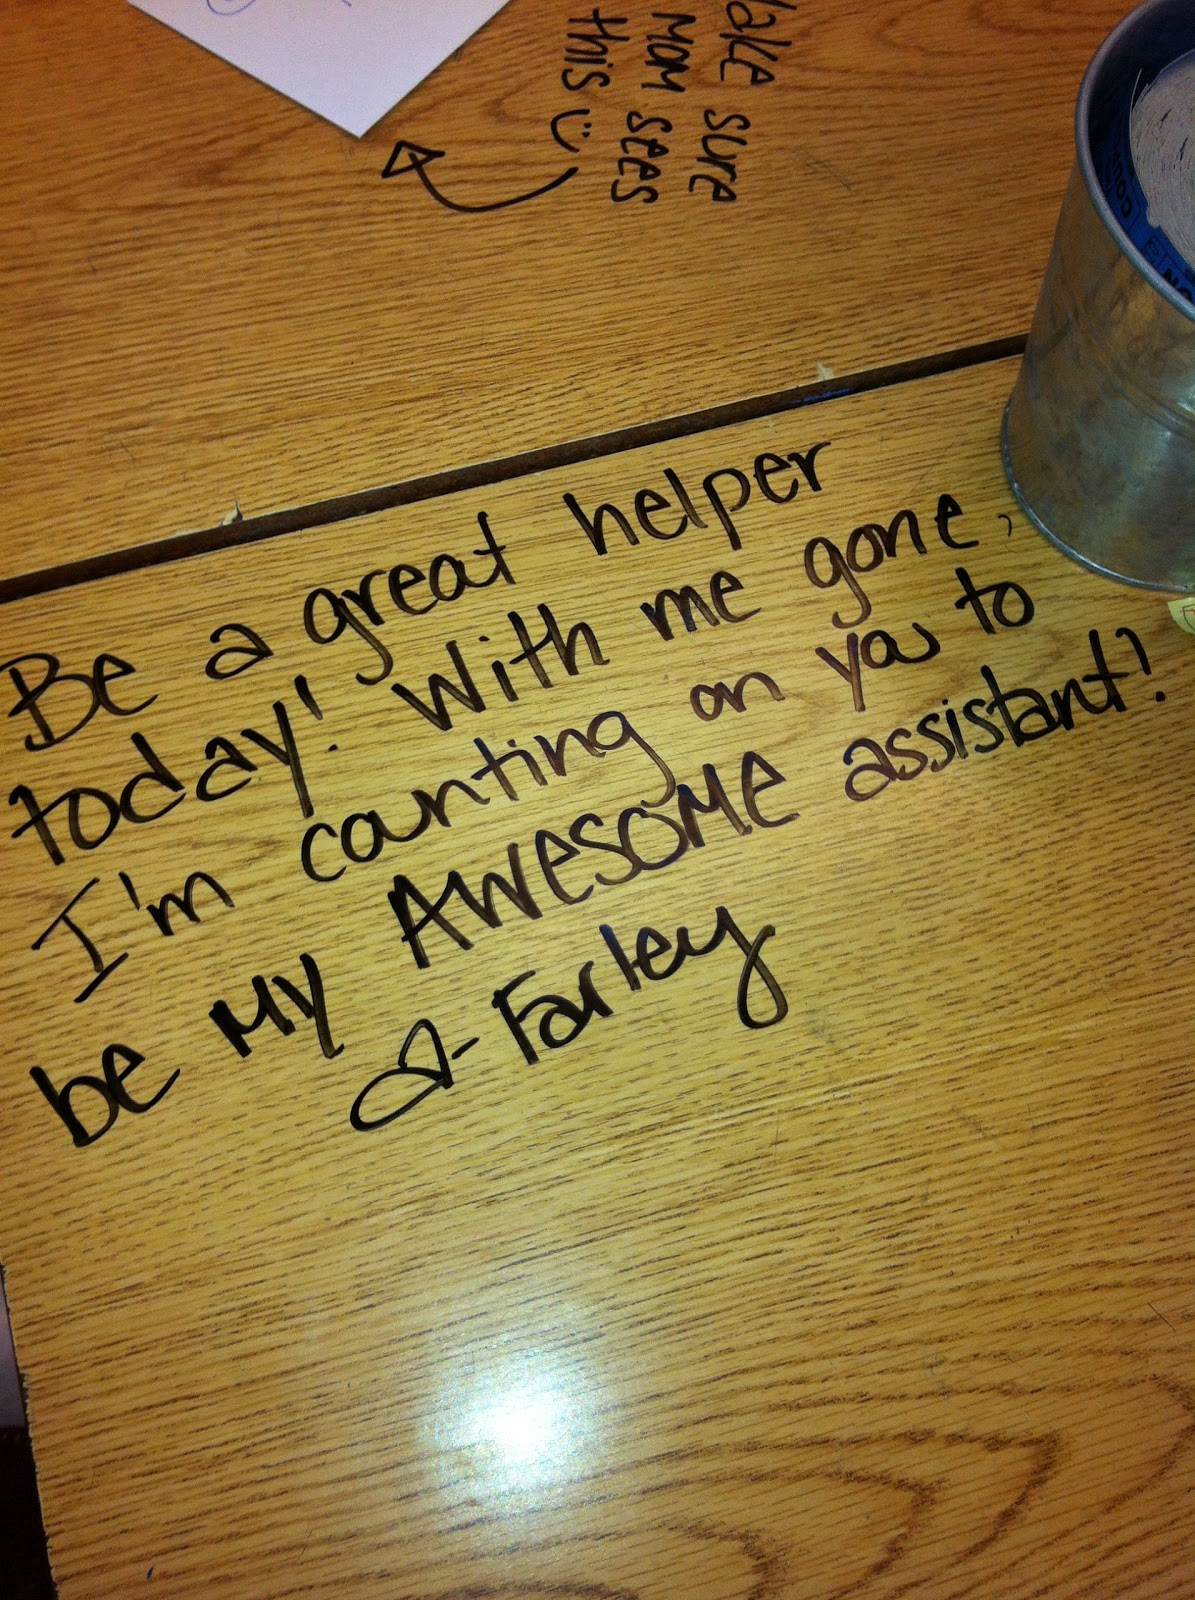 sure
Mom sees
this
Be a great helper
today! With me gone,
I'm counting on you to
be my AWESOME assistant!
- Farley